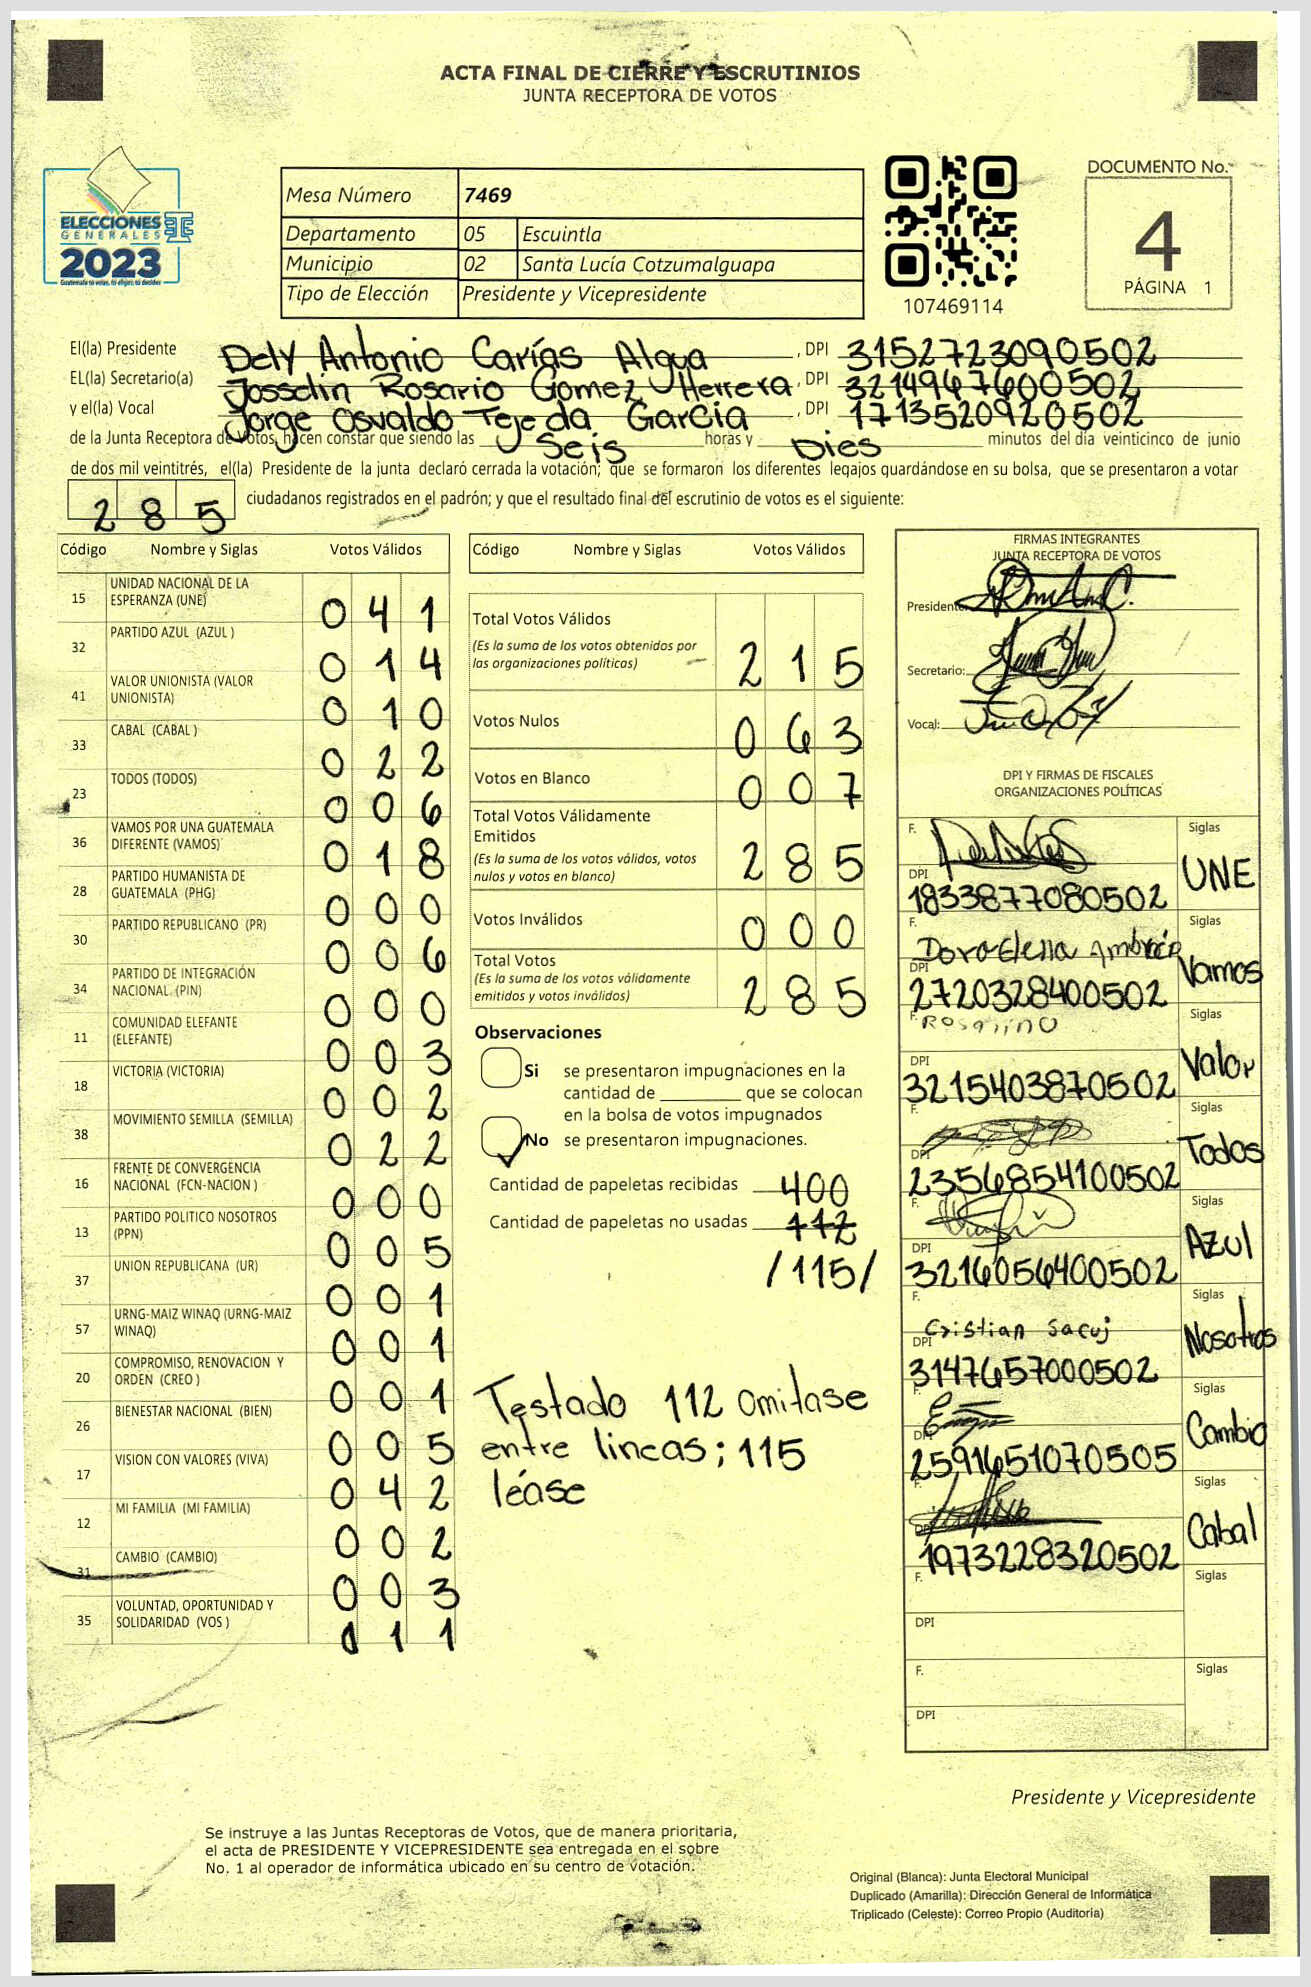 ACTA FINAL DE CIERRE Y ESCRUTINIOS
JUNTA RECEPTORA DE VOTOS
ELECCIONES
GENERALES
2023
Guatemala tú votas, tú eliges, tú decides
Mesa Número 7469
Departamento 05 Escuintla
Municipio 02 Santa Lucía Cotzumalguapa
Tipo de Elección Presidente y Vicepresidente
107469114
DOCUMENTO No.
4
PÁGINA 1
El(la) Presidente Dely Antonio Carías Algua, DPI 3152723090502
EL(la) Secretario(a) Josselin Rosario Gomez Herrera, DPI 3214967600502
y el(la) Vocal Jorge Osvaldo Tejeda Garcia, DPI 1713520920502
de la Junta Receptora de Votos, hacen constar que siendo las Seis horas y Dies minutos del día veinticinco de junio
de dos mil veintitrés, el(la) Presidente de la junta declaró cerrada la votación; que se formaron los diferentes legajos guardándose en su bolsa, que se presentaron a votar
285 ciudadanos registrados en el padrón; y que el resultado final del escrutinio de votos es el siguiente:
Código Nombre y Siglas Votos Válidos
15 UNIDAD NACIONAL DE LA ESPERANZA (UNE) 041
32 PARTIDO AZUL (AZUL ) 014
41 VALOR UNIONISTA (VALOR UNIONISTA) 010
33 CABAL (CABAL ) 022
23 TODOS (TODOS) 006
36 VAMOS POR UNA GUATEMALA DIFERENTE (VAMOS) 018
28 PARTIDO HUMANISTA DE GUATEMALA (PHG) 000
30 PARTIDO REPUBLICANO (PR) 006
34 PARTIDO DE INTEGRACIÓN NACIONAL (PIN) 000
11 COMUNIDAD ELEFANTE (ELEFANTE) 003
18 VICTORIA (VICTORIA) 002
38 MOVIMIENTO SEMILLA (SEMILLA) 022
16 FRENTE DE CONVERGENCIA NACIONAL (FCN-NACION ) 000
13 PARTIDO POLITICO NOSOTROS (PPN) 005
37 UNION REPUBLICANA (UR) 001
57 URNG-MAIZ WINAQ (URNG-MAIZ WINAQ) 001
20 COMPROMISO, RENOVACION Y ORDEN (CREO ) 001
26 BIENESTAR NACIONAL (BIEN) 005
17 VISION CON VALORES (VIVA) 042
12 MI FAMILIA (MI FAMILIA) 002
31 CAMBIO (CAMBIO) 003
35 VOLUNTAD, OPORTUNIDAD Y SOLIDARIDAD (VOS ) 011
Código Nombre y Siglas Votos Válidos
Total Votos Válidos 215
(Es la suma de los votos obtenidos por
las organizaciones políticas)
Votos Nulos 063
Votos en Blanco 007
Total Votos Válidamente
Emitidos 285
(Es la suma de los votos válidos, votos
nulos y votos en blanco)
Votos Inválidos 000
Total Votos 285
(Es la suma de los votos válidamente
emitidos y votos inválidos)
Observaciones
Si se presentaron impugnaciones en la
cantidad de ________ que se colocan
en la bolsa de votos impugnados
No se presentaron impugnaciones.
Cantidad de papeletas recibidas 400
Cantidad de papeletas no usadas 112
/115/
Testado 112 omitase
entre lineas; 115
léase
FIRMAS INTEGRANTES
JUNTA RECEPTORA DE VOTOS
Presidente:
Secretario:
Vocal:
DPI Y FIRMAS DE FISCALES
ORGANIZACIONES POLÍTICAS
F. Siglas
DPI UNE
1833877080502
F. Dora Elena Ambrocio Siglas
DPI Vamos
2720328400502
F. Rosalino Siglas
DPI Valor
3215403870502
F. Siglas
DPI Todos
2356854100502
F. Siglas
DPI Azul
3216056400502
F. Cristian Sacuj Siglas
DPI Nosotros
3147657000502
F. Siglas
DPI Cambio
2591651070505
F. Siglas
DPI Cabal
1973228320502
F. Siglas
DPI
F. Siglas
DPI
Presidente y Vicepresidente
Se instruye a las Juntas Receptoras de Votos, que de manera prioritaria,
el acta de PRESIDENTE Y VICEPRESIDENTE sea entregada en el sobre
No. 1 al operador de informática ubicado en su centro de votación.
Original (Blanca): Junta Electoral Municipal
Duplicado (Amarilla): Dirección General de Informática
Triplicado (Celeste): Correo Propio (Auditoría)